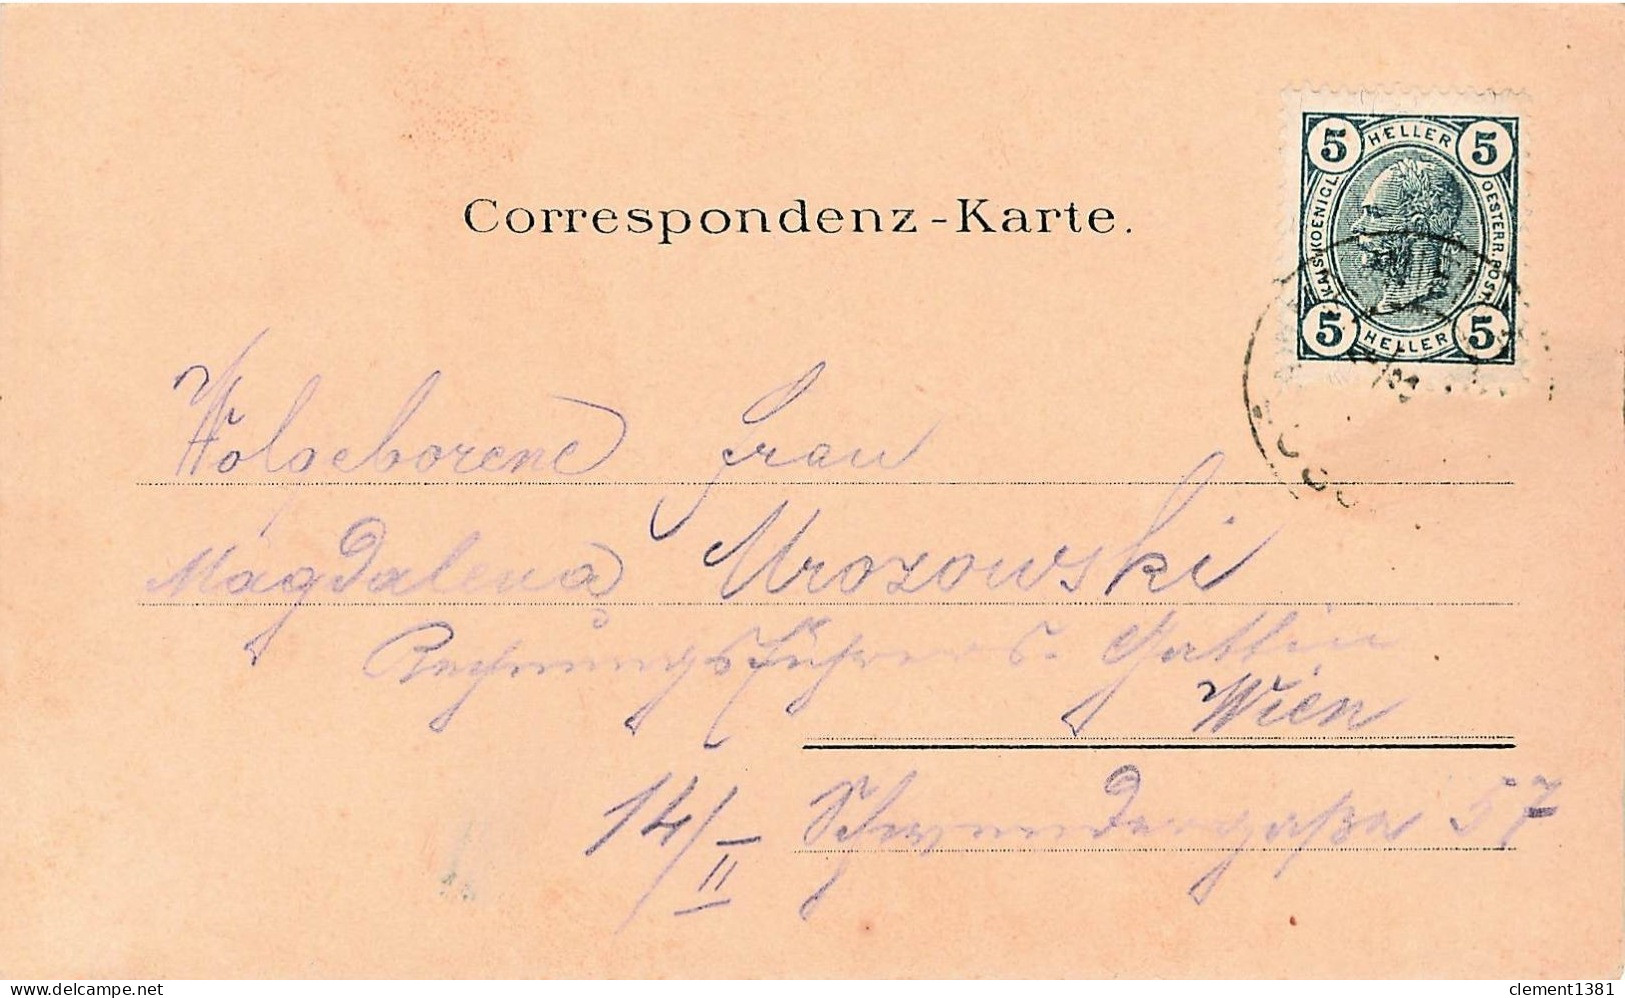 Correspondenz-Karte.
5 HELLER 5
KAIS. KOENIGL. OESTERR. POST.
5 HELLER 5
Wolgeborene Frau
Magdalena Mrozowski
Rechnungsführers. Gattin
Wien
14/II Schwendergaße 57
delcampe.net
clement1381